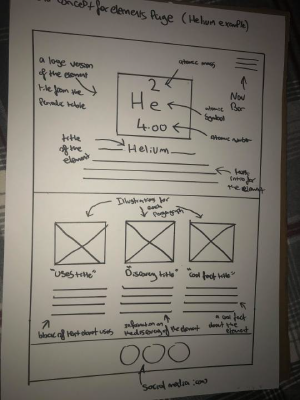 concept for elements Page (Helium example)
a large version
of the element
tile from the
Periodic table
2
He
4.00
atomic mass
atomic
symbol
atomic number
Nav
Bar
title
of the
element
Helium
intro for
the element
Illustration for
each
Paragraph
"Uses title"
"Discovery title"
"Cool fact title"
block of text about uses
information on
the discovery of the element
a cool fact
about the
element
Social media icons